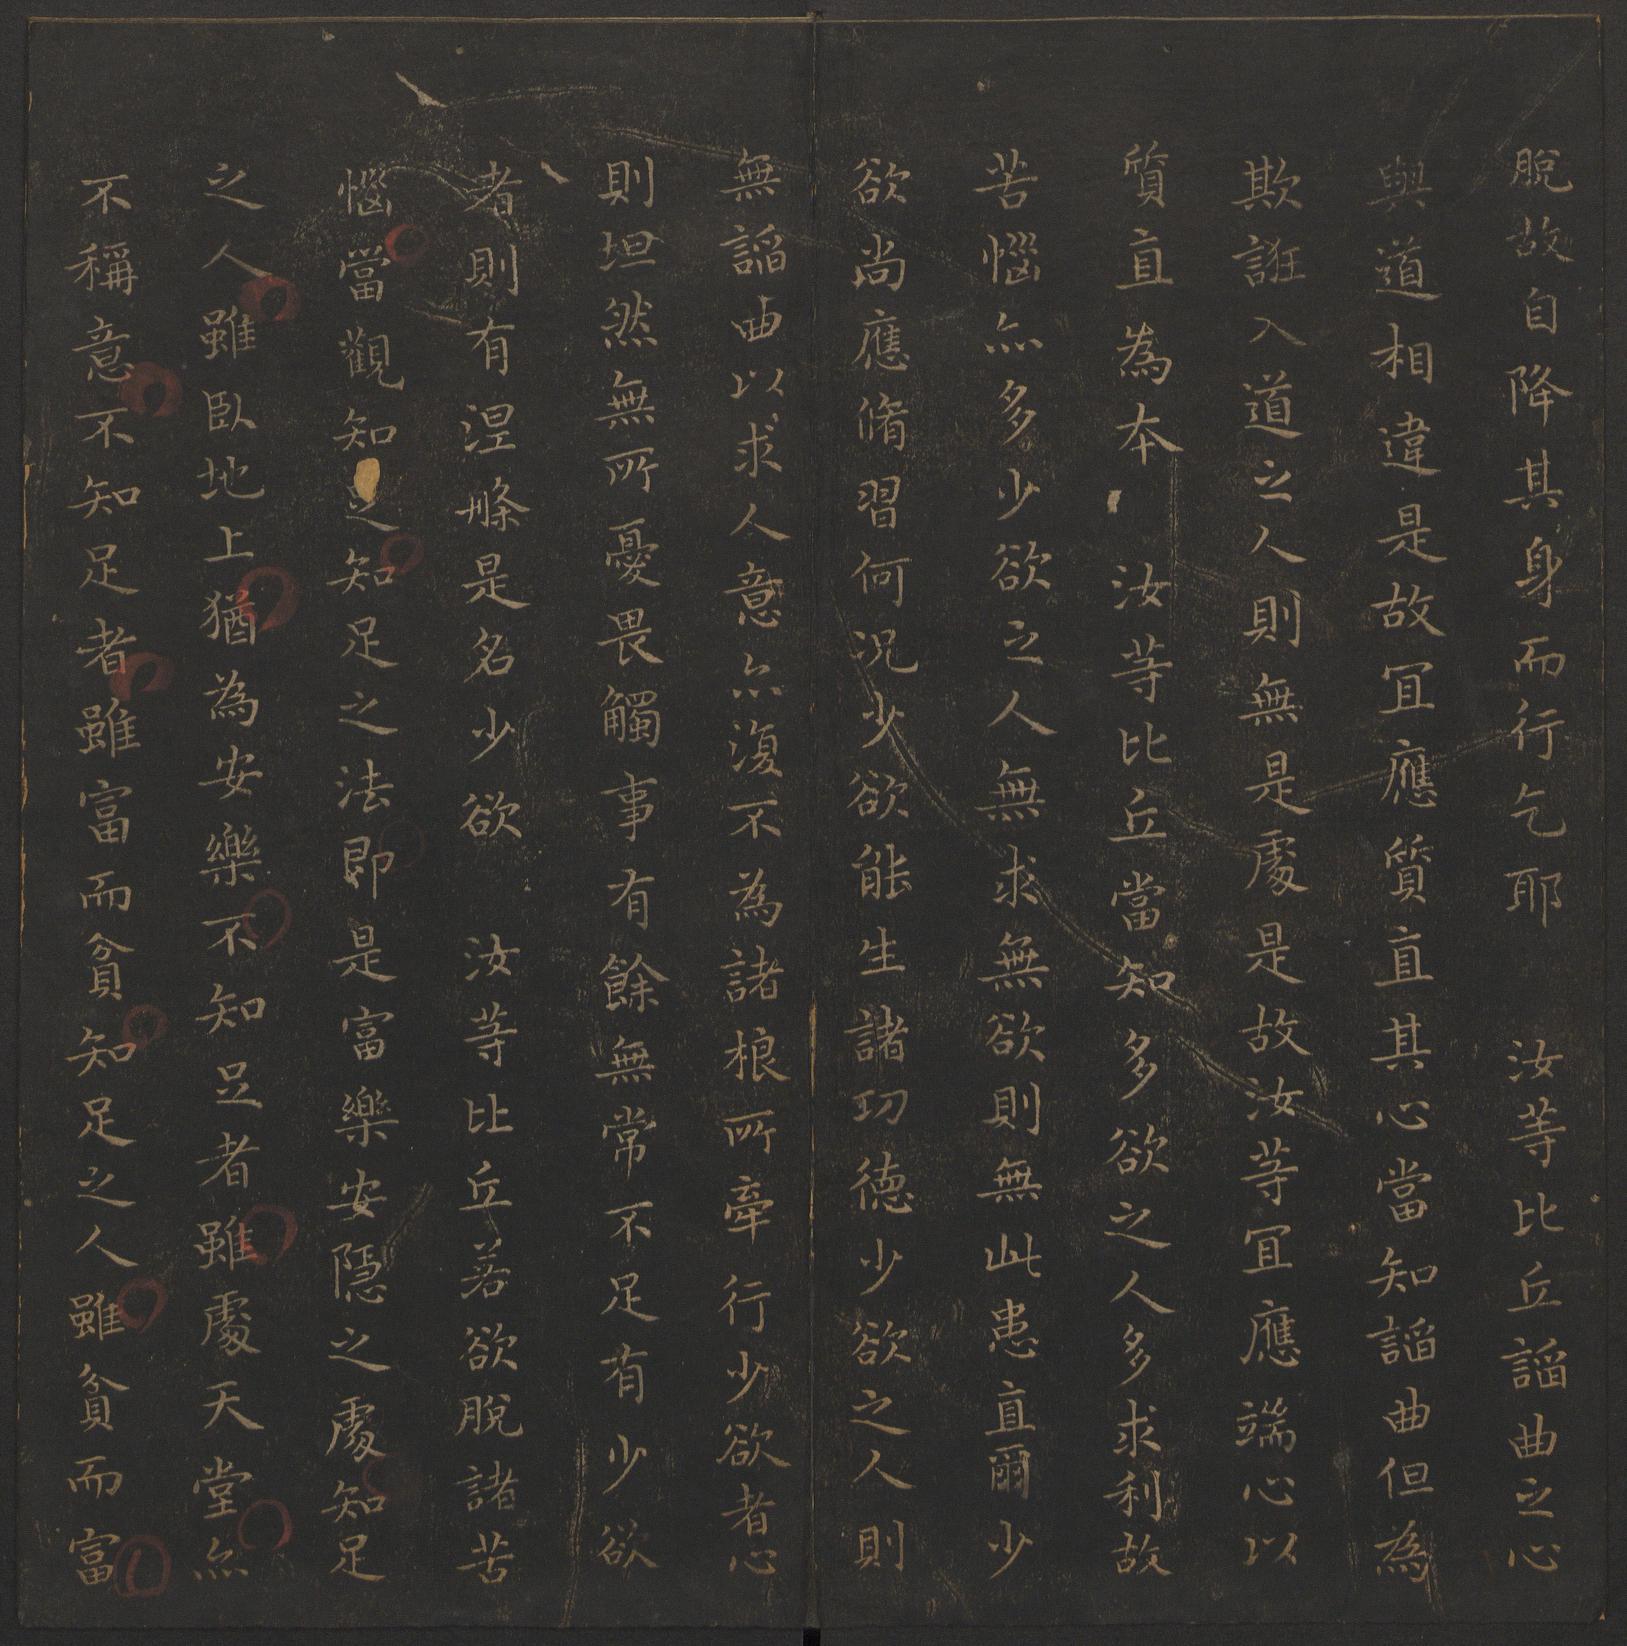 脫故自降其身而行乞耶 汝等比丘諂曲之心
與道相違是故冝應質直其心當知諂曲但為
欺誑入道之人則無是處是故汝等冝應端心以
質直為本 汝等比丘當知多欲之人多求利故
苦惱亦多少欲之人無求無欲則無此患直爾少
欲尚應脩習何況少欲能生諸功德少欲之人則
無諂曲以求人意亦復不為諸根所牽行少欲者心
則坦然無所憂畏觸事有餘無常不足有少欲
者則有涅槃是名少欲 汝等比丘若欲脫諸苦
惱當觀知足知足之法即是富樂安隱之處知足
之人雖臥地上猶為安樂不知足者雖處天堂亦
不稱意不知足者雖富而貧知足之人雖貧而富